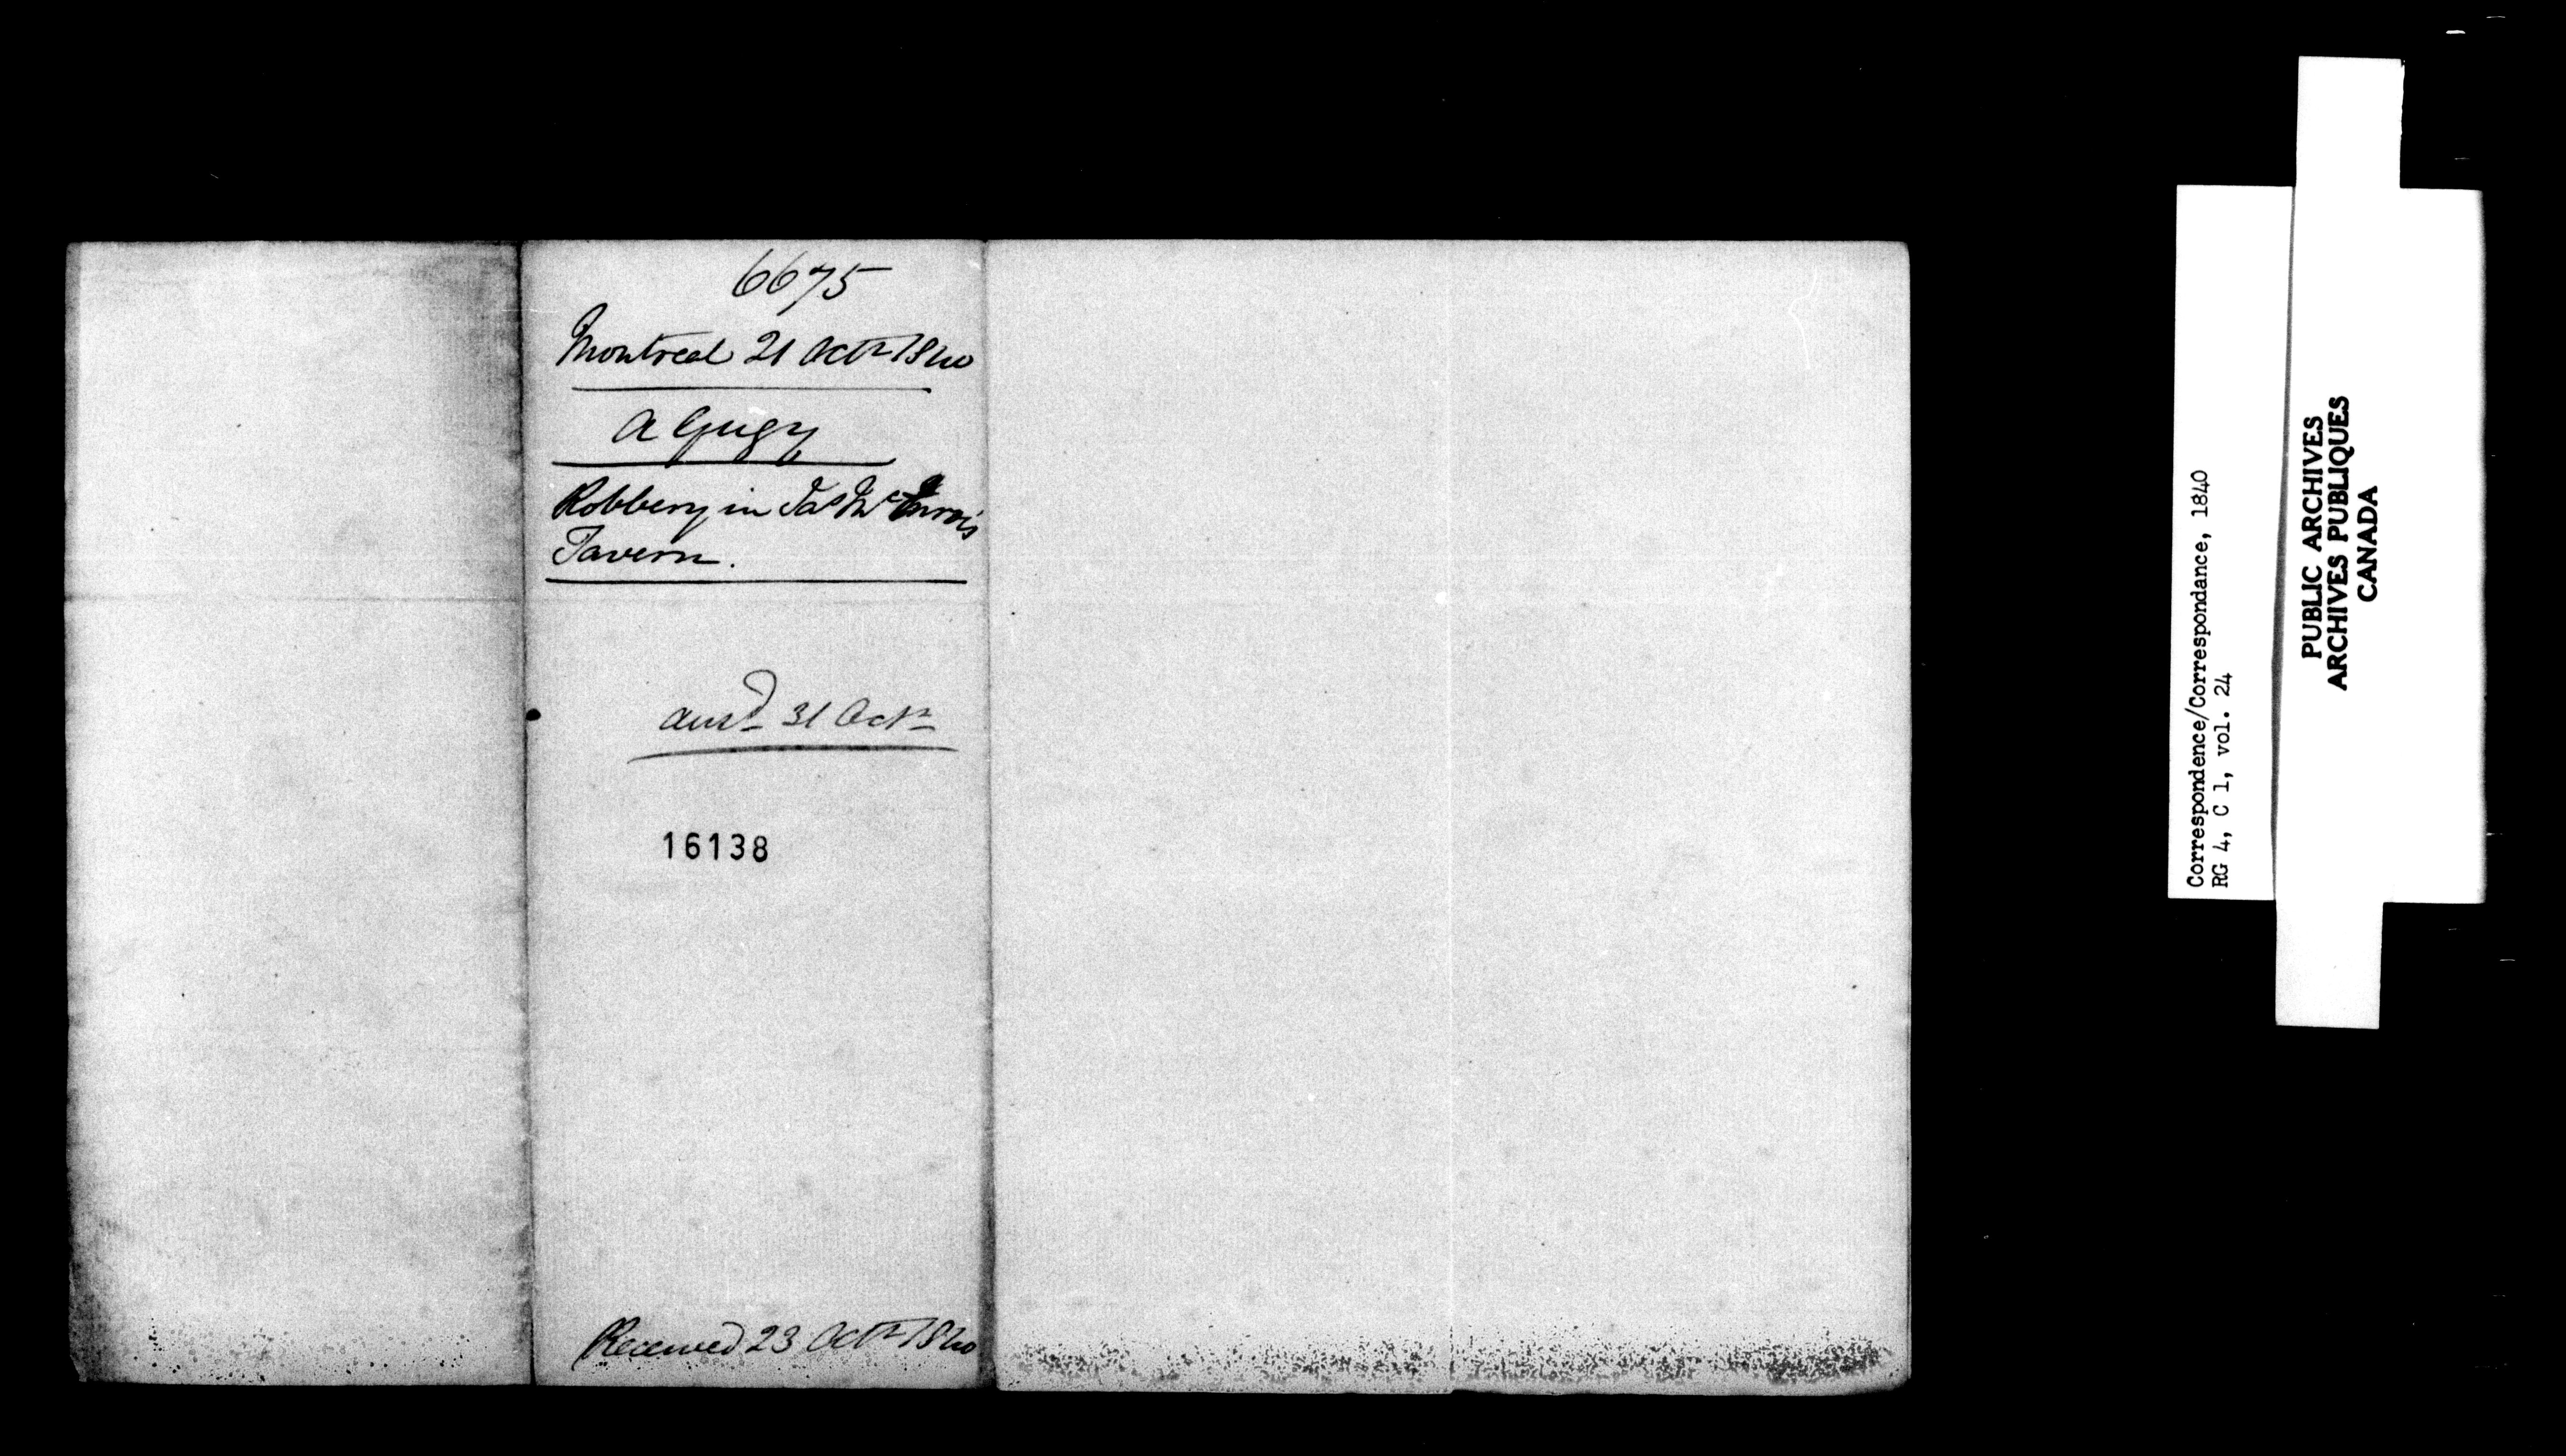 6675
Montreal 21 Octr 1840
A Gugy
Robbery in Jas Mc
Tavern.
ansd 31 Octr
16138
Received 23 Octr 1840
Correspondence/Correspondance, 1840
RG 4, C 1, vol. 24
PUBLIC ARCHIVES
ARCHIVES PUBLIQUES
CANADA